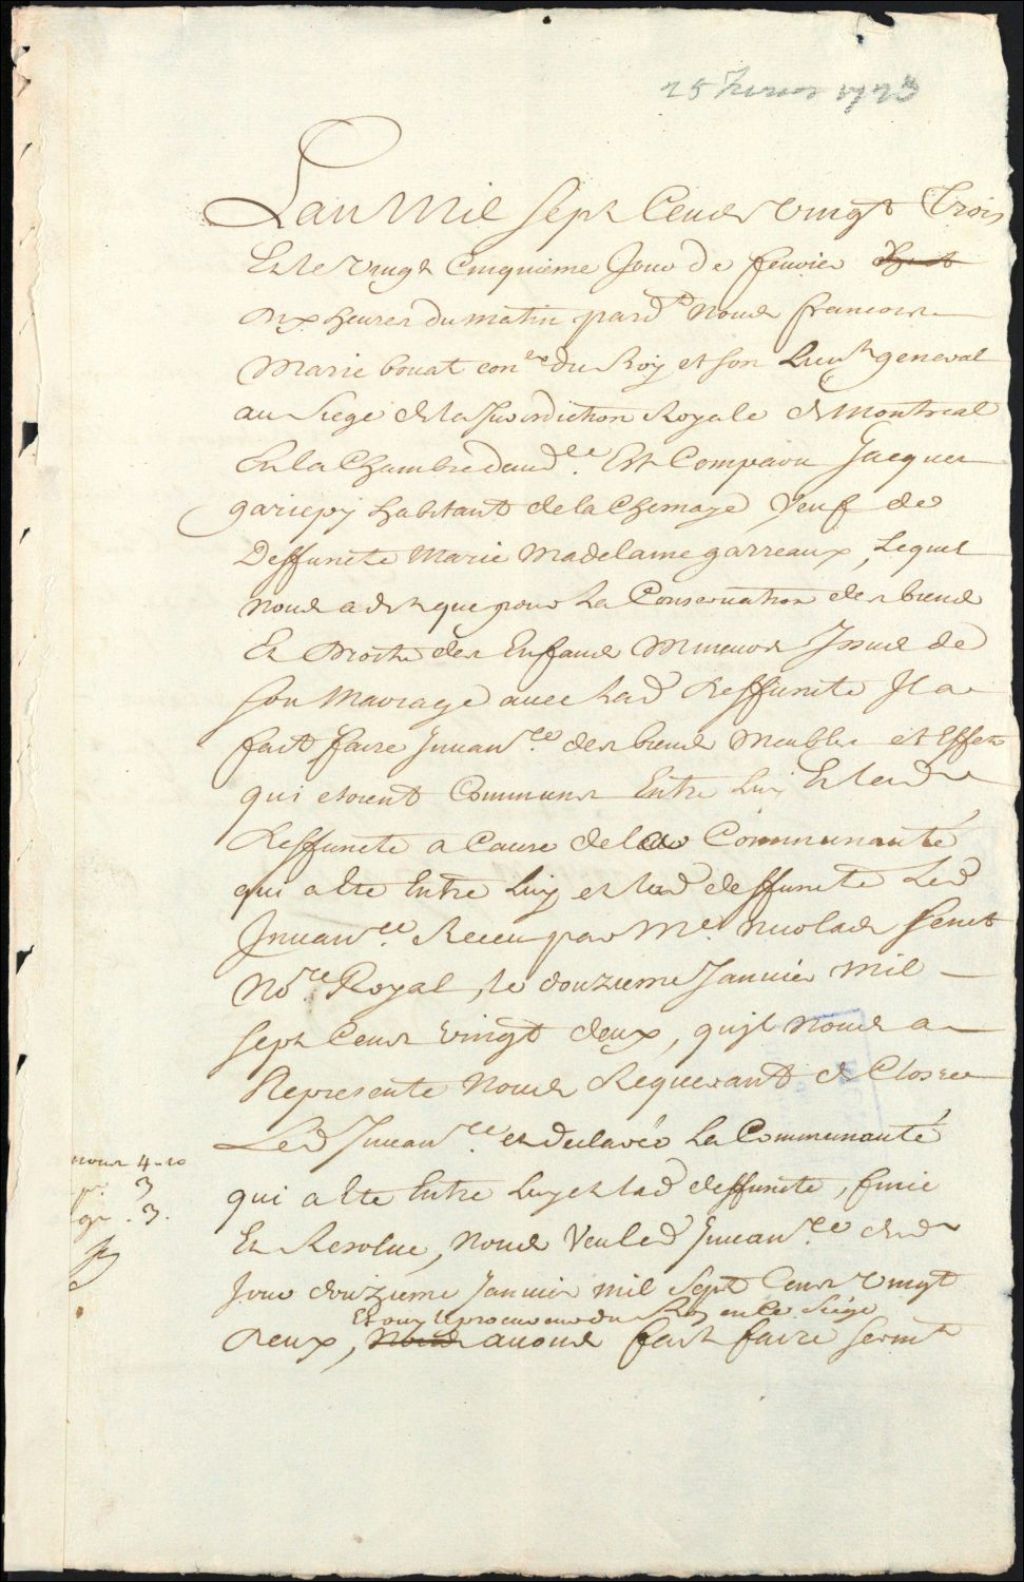 25 fevrier 1723
Lan Mil Sept Cends vingt Trois
Et le vingt Cinquieme Jour de fevrier
dix heures du matin pard.t Nous francois
Marie bouat con.er du Roy et son Lieu.t general
au siege de la Jurisdiction Royale de Montreal
En la Chambre daud.ce Est Comparu Jacques
gariepy habitant de la Chenaye Veuf de
Deffuncte Marie Madelaine garreaux, Lequel
nous a dit que pour La Conservation des biens
Et Droits des Enfans Mineurs Issus de
son Mariage avec Lad deffuncte Il a
fait faire Inuan.re des biens Meubles et Effets
qui etoient Communs Entre Luy Et lad
deffuncte a Cause de la Communauté
qui a Ete Entre Luy et lad deffuncte Led
Inuan.re Receu par Me. Nicolas Senet
No.re Royal, le douzieme Januier Mil
sept Cens vingt deux, quil Nous a
Represente Nous Requerant de Clorre
Led Inuan.re et declarer La Communauté
qui a Ete Entre Luy et lad deffuncte, finie
Et Resolue, Nous Veu led Inuan.re dud
jour douzieme Januier mil sept Cens vingt
Et ouy le procureur du Roy en ce Siege
deux, Nous auons fait faire serm.t
nous 4-10
p. 3
gr. 3.